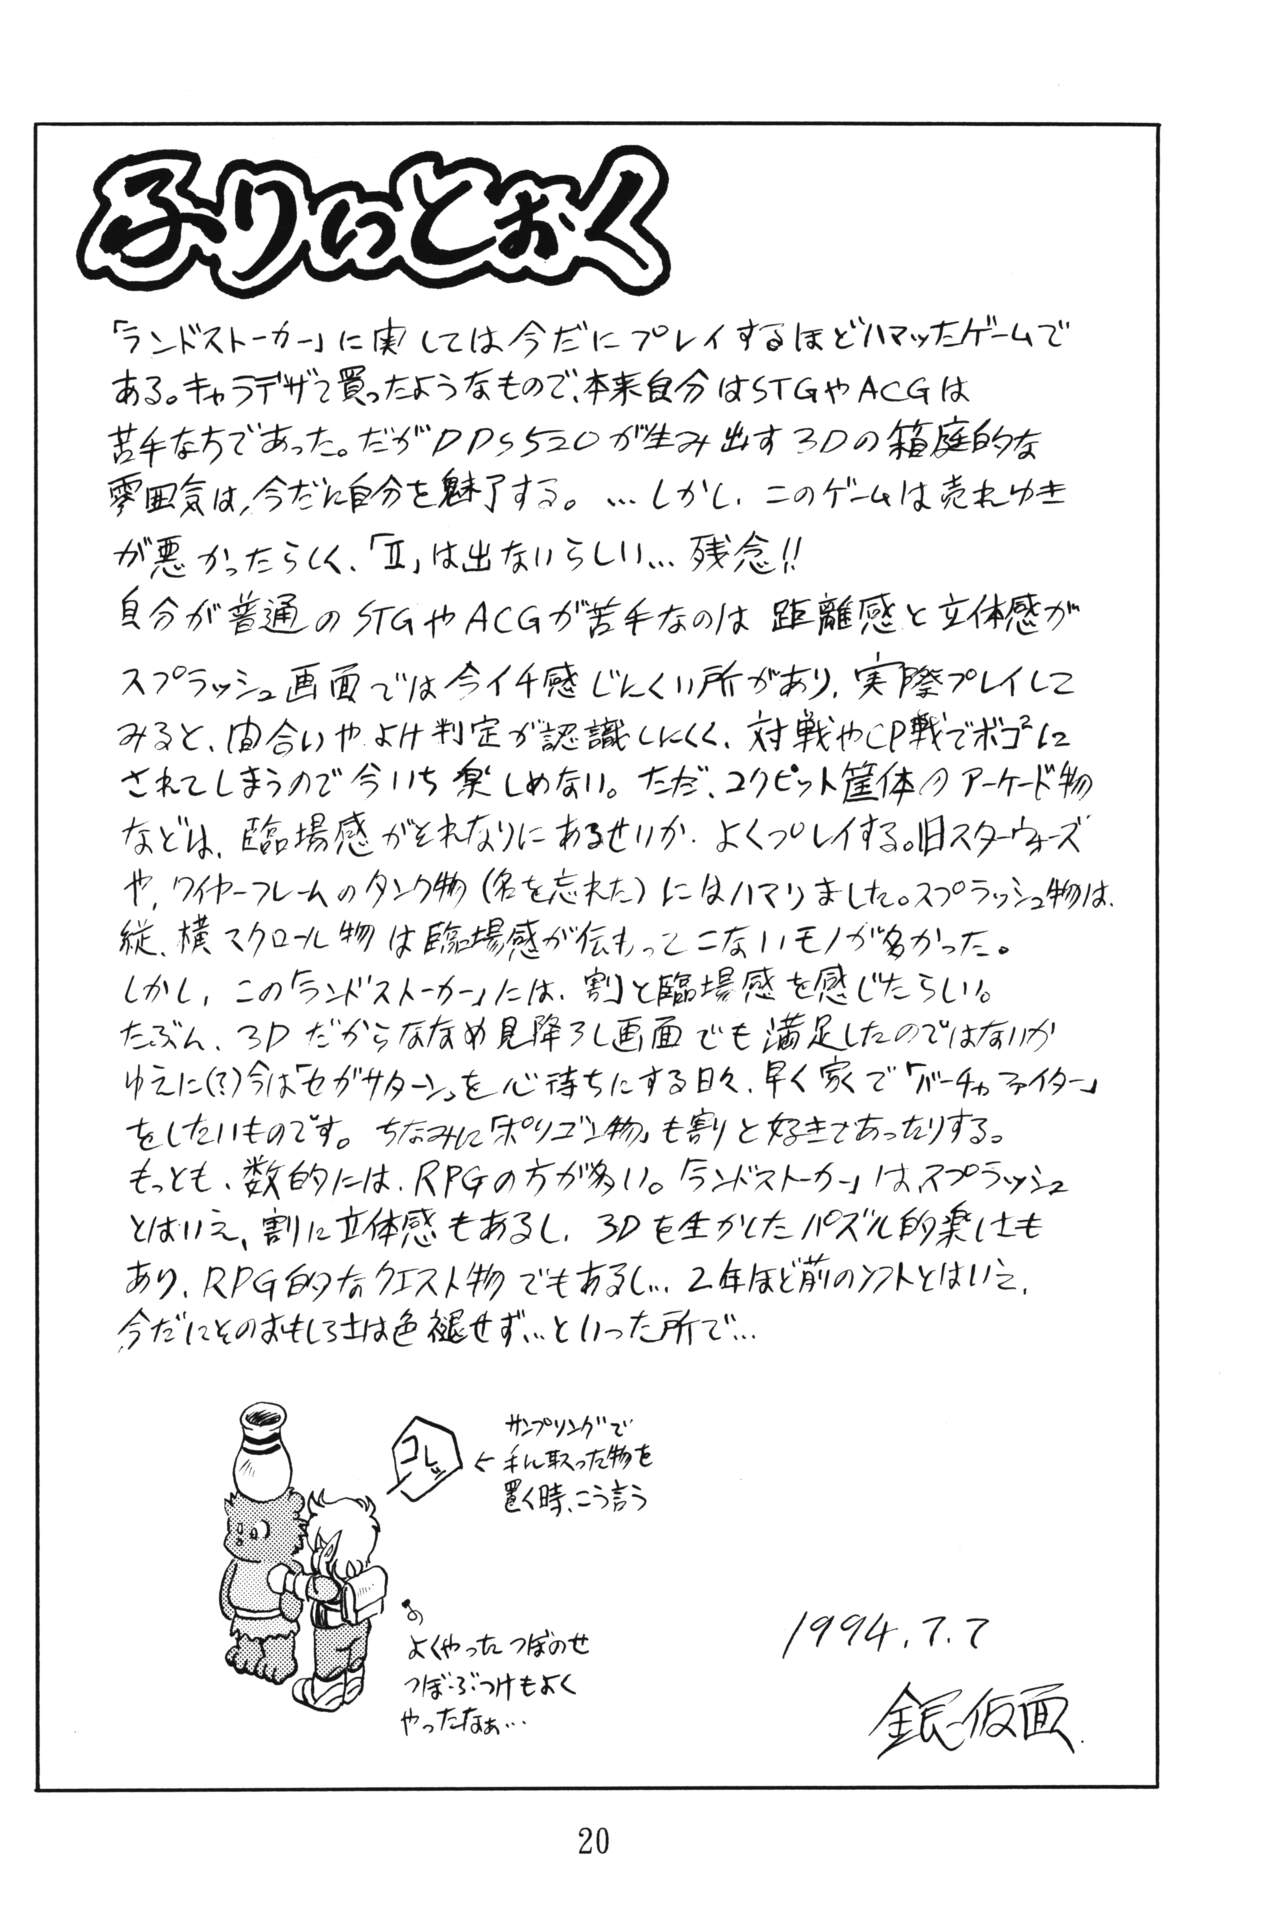 ふりぃとぉく
「ランドストーカー」に実しては今だにプレイするほどハマッたゲームで
ある。キャラデザで買ったようなもので、本来自分はSTGやACGは
苦手な方であった。だがDDS520が生み出す3Dの箱庭的な
雰囲気は、今だに自分を魅了する。…しかし、このゲームは売れゆき
が悪かったらしく、「Ⅱ」は出ないらしい…残念!!
自分が普通のSTGやACGが苦手なのは 距離感と立体感が
スプラッシュ画面では今イチ感じにくい所があり、実際プレイして
みると、間合いやよけ判定が認識しにくく、対戦やCP戦でボコ²に
されてしまうので今いち楽しめない。ただ、コクピット筐体のアーケード物
などは、臨場感がそれなりにあるせいか、よくプレイする。旧スターウォーズ
や、ワイヤーフレームのタンク物(名を忘れた)にはハマリました。スプラッシュ物は、
縦、横スクロール物は臨場感が伝わってこないモノが多かった。
しかし、この「ランドストーカー」には、割と臨場感を感じたらしい。
たぶん、3Dだからななめ見降ろし画面でも満足したのではないか
ゆえに(?)今は「セガサターン」を心待ちにする日々、早く家で「バーチャファイター」
をしたいものです。ちなみに「ポリゴン物」も割と好きであったりする。
もっとも、数的には、RPGの方が多い。「ランドストーカー」は、スプラッシュ
とはいえ、割に立体感もあるし、3Dを生かしたパズル的楽しさも
あり、RPG的なクエスト物でもあるし… 2年ほど前のソフトとはいえ、
今だにそのおもしろさは色褪せず…といった所で…
コレッ
サンプリングで
手に取った物を
置く時、こう言う
よくやったつぼのせ
つぼぶつけもよく
やったなぁ…
1994.7.7
銀仮面
20